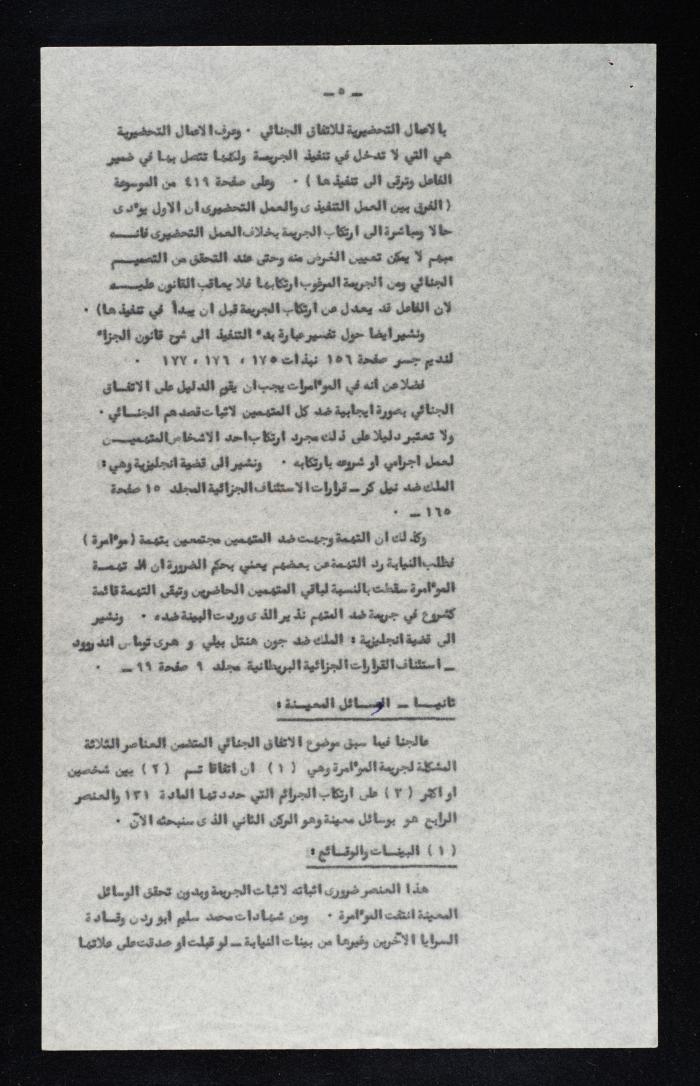 ـ ٥ ـ
بالاعمال التحضيرية للاتفاق الجنائي ٠ وعرف الاعمال التحضيرية
هي التي لا تدخل في تنفيذ الجريمة ولكنها تتصل بها في ضمير
الفاعل وترقى الى تنفيذها ) ٠ وعلى صفحة ٤١٩ من الموسوعة
( الفرق بين العمل التنفيذى والعمل التحضيرى ان الاول يؤدى
حالا ومباشرة الى ارتكاب الجريمة بخلاف العمل التحضيرى فانــه
مبهم لا يمكن تعيين الغرض منه وحتى عند التحقق من التصميــم
الجنائي ومن الجريمة المرغوب ارتكابها فلا يعاقب القانون عليــه
لان الفاعل قد يعدل عن ارتكاب الجريمة قبل ان يبدأ في تنفيذها) ٠
ونشير ايضا حول تفسير عبارة بدء التنفيذ الى شرح قانون الجزاء
لنديم جسر صفحة ١٥٦ نبذات ١٧٥ ، ١٧٦ ، ١٧٧ ٠
فضلا عن أنه في المؤامرات يجب ان يقوم الدليل على الاتفــاق
الجنائي بصورة ايجابية ضد كل المتهمين لاثبات قصدهم الجنــائي ٠
ولا تعتبر دليلا على ذلك مجرد ارتكاب احد الاشخاص المتهميــن
لعمل اجرامي او شروعه بارتكابه ٠ ونشير الى قضية انجليزية وهي :
الملك ضد نيل كر ـ قرارات الاستئناف الجزائية المجلد ١٥ صفحة
١٦٥ ـ ٠
وكذلك ان التهمة وجهت ضد المتهمين مجتمعين بتهمة ( مؤامرة )
فطلب النيابة رد التهمة عن بعضهم يعني بحكم الضرورة ان تهمــة
المؤامرة سقطت بالنسبة لباقي المتهمين الحاضرين وتبقى التهمة قائمة
كشروع في جريمة ضد المتهم نذير الذى وردت البينة ضده ٠ ونشير
الى قضية انجليزية : الملك ضد جون هنتل بيلي و هرى توماس اندروود
ـ استئناف القرارات الجزائية البريطانية مجلد ٩ صفحة ٩٩ ـ ٠
ثانيــا ـ الوســائل المعيــنة :
عالجنا فيما سبق موضوع الاتفاق الجنائي المتضمن العناصر الثلاثة
المشكلة لجريمة المؤامرة وهي ( ١ ) ان اتفاقا تــم ( ٢ ) بين شخصين
او اكثر ( ٣ ) على ارتكاب الجرائم التي حددتها المادة ١٣١ والعنصر
الرابع هو بوسائل معينة وهو الركن الثاني الذى سنبحثه الآن ٠
( ١ ) البينــات والوقــائع :
هذا العنصر ضرورى اثباته لاثبات الجريمة وبدون تحقق الوسائل
المعينة انتفت المؤامرة ٠ ومن شهادات محمد سليم ابو ردن وقــادة
السرايا الآخرين وغيرها من بينات النيابة ـ لو قبلت او صدقت على علاتها